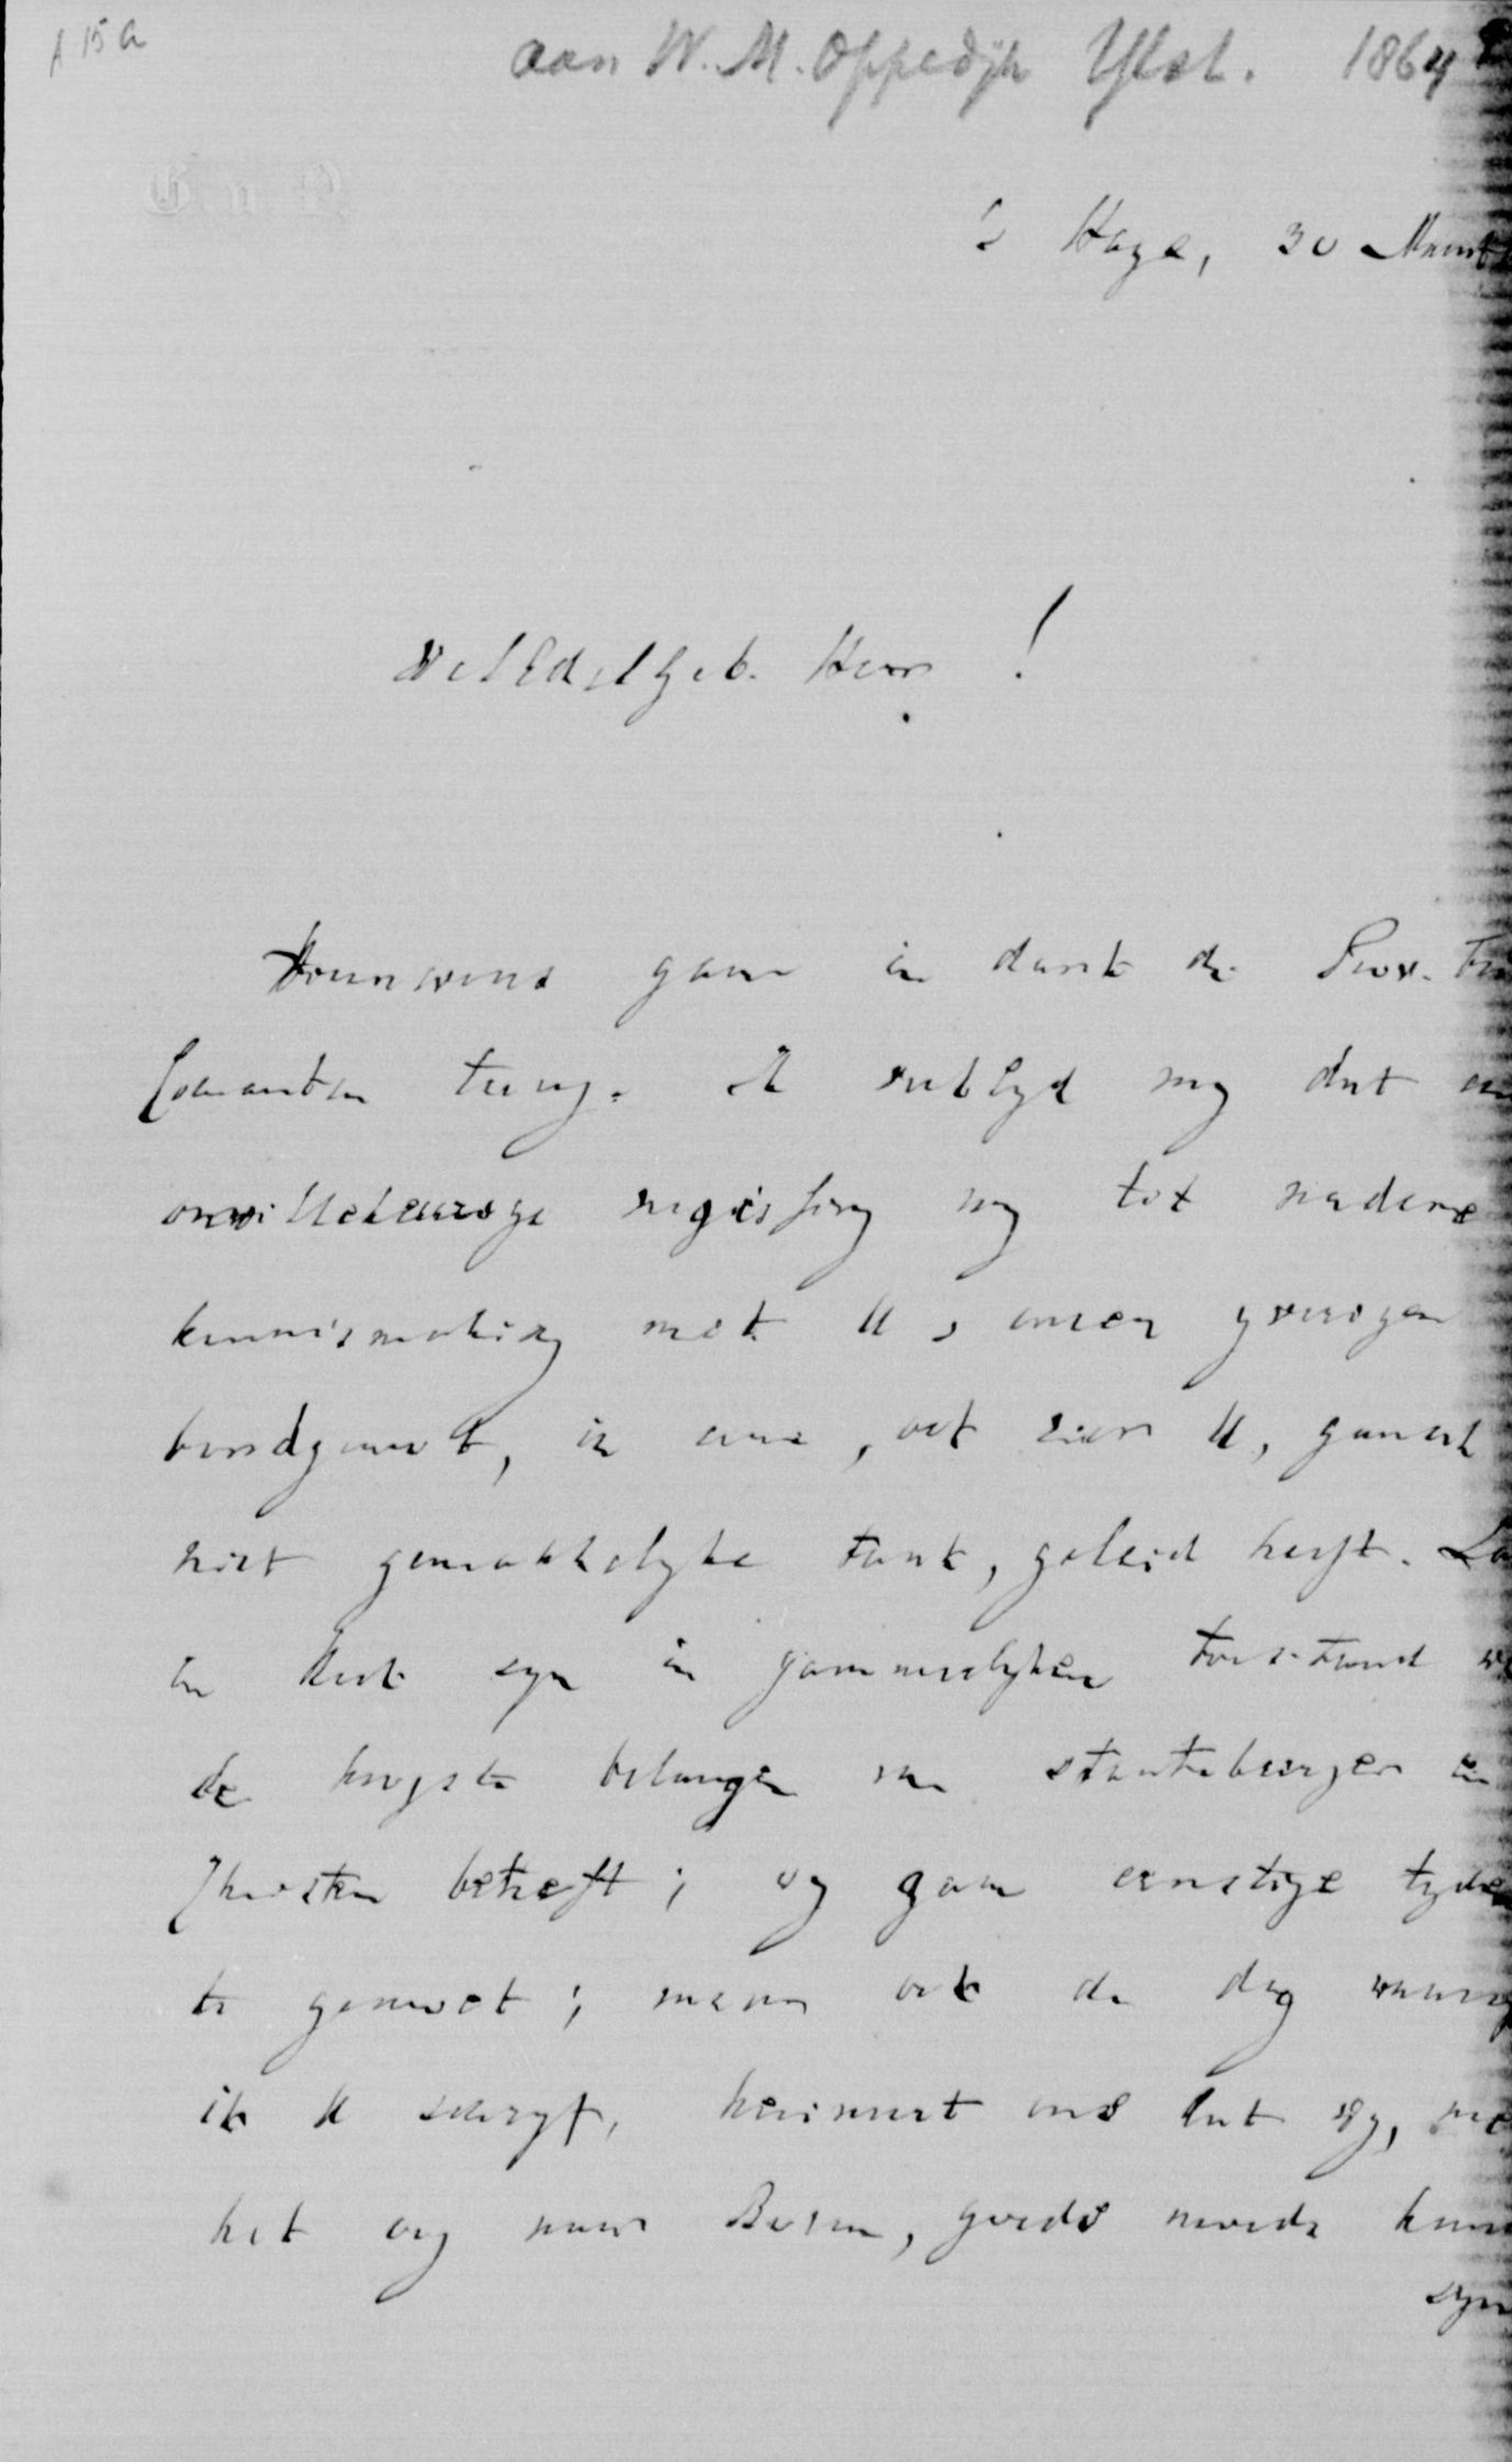 p 15 a
aan W. M. Oppedijk Ylst. 1864
's Hage, 30 Maart
WelEdelGeb. Heer!
gaan in dank de Prov.
Couranten terug. Het verblydt my dat
onwillekeurige vergissing my tot nadere
kennismaking met U, onzen yverigen
bondgenoot, in eene, ook voor U, gansch
niet gemakkelyke taak, geleid heeft.
en Kerk zyn in jammerlyken toestand
de hoogste belangen van staatsburger en
Christen betreft; wy gaan ernstige tyden
te gemoet; maar ook de dag waarop
ik U schryf, herinnert ons dat wy,
het oog naar Boven, goeds moeds
zyn